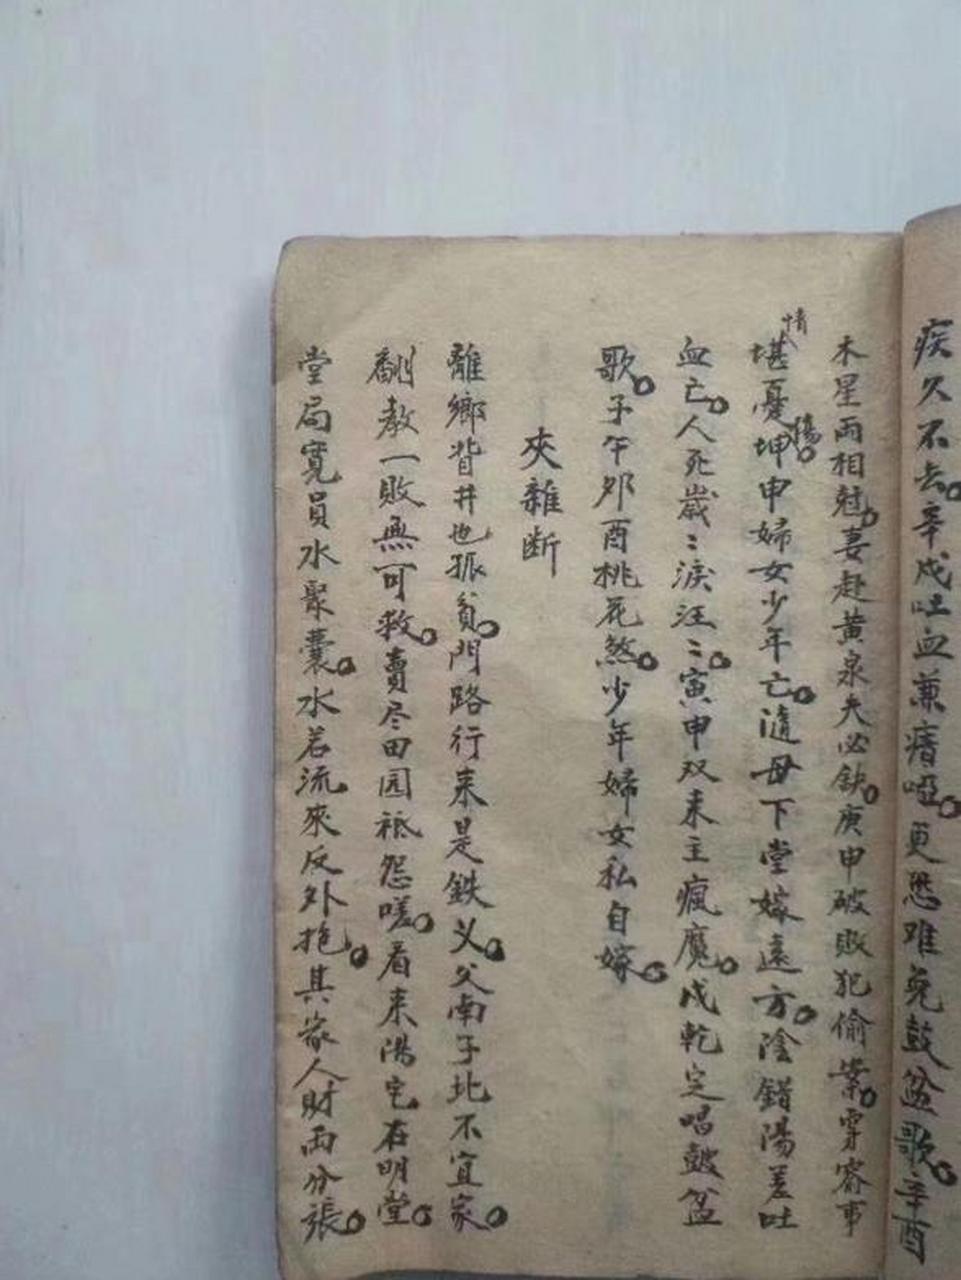 疾久不去。辛戌吐血兼瘖啞。更恐难免鼓盆歌。辛酉
木星両相尅。妻赴黄泉夫必缺。庚申破敗犯偷案。穿窬事
情
堪憂坤申婦女少年亡。隨母下堂嫁遠方。陰錯陽差吐
傷。
血亡。人死歲〻淚汪〻。寅申双来主瘋魔。戌乾定唱鼓盆
歌。子午夘酉桃花煞。少年婦女私自嫁。
夾雜断
離鄉背井也孤貧。門路行来是鉄义。父南子北不宜家。
翻教一敗無可救。賣尽田园祗怨嗟。看来陽宅在明堂。
堂局寛員水聚囊。水若流來反外抱。其家人財両分張。